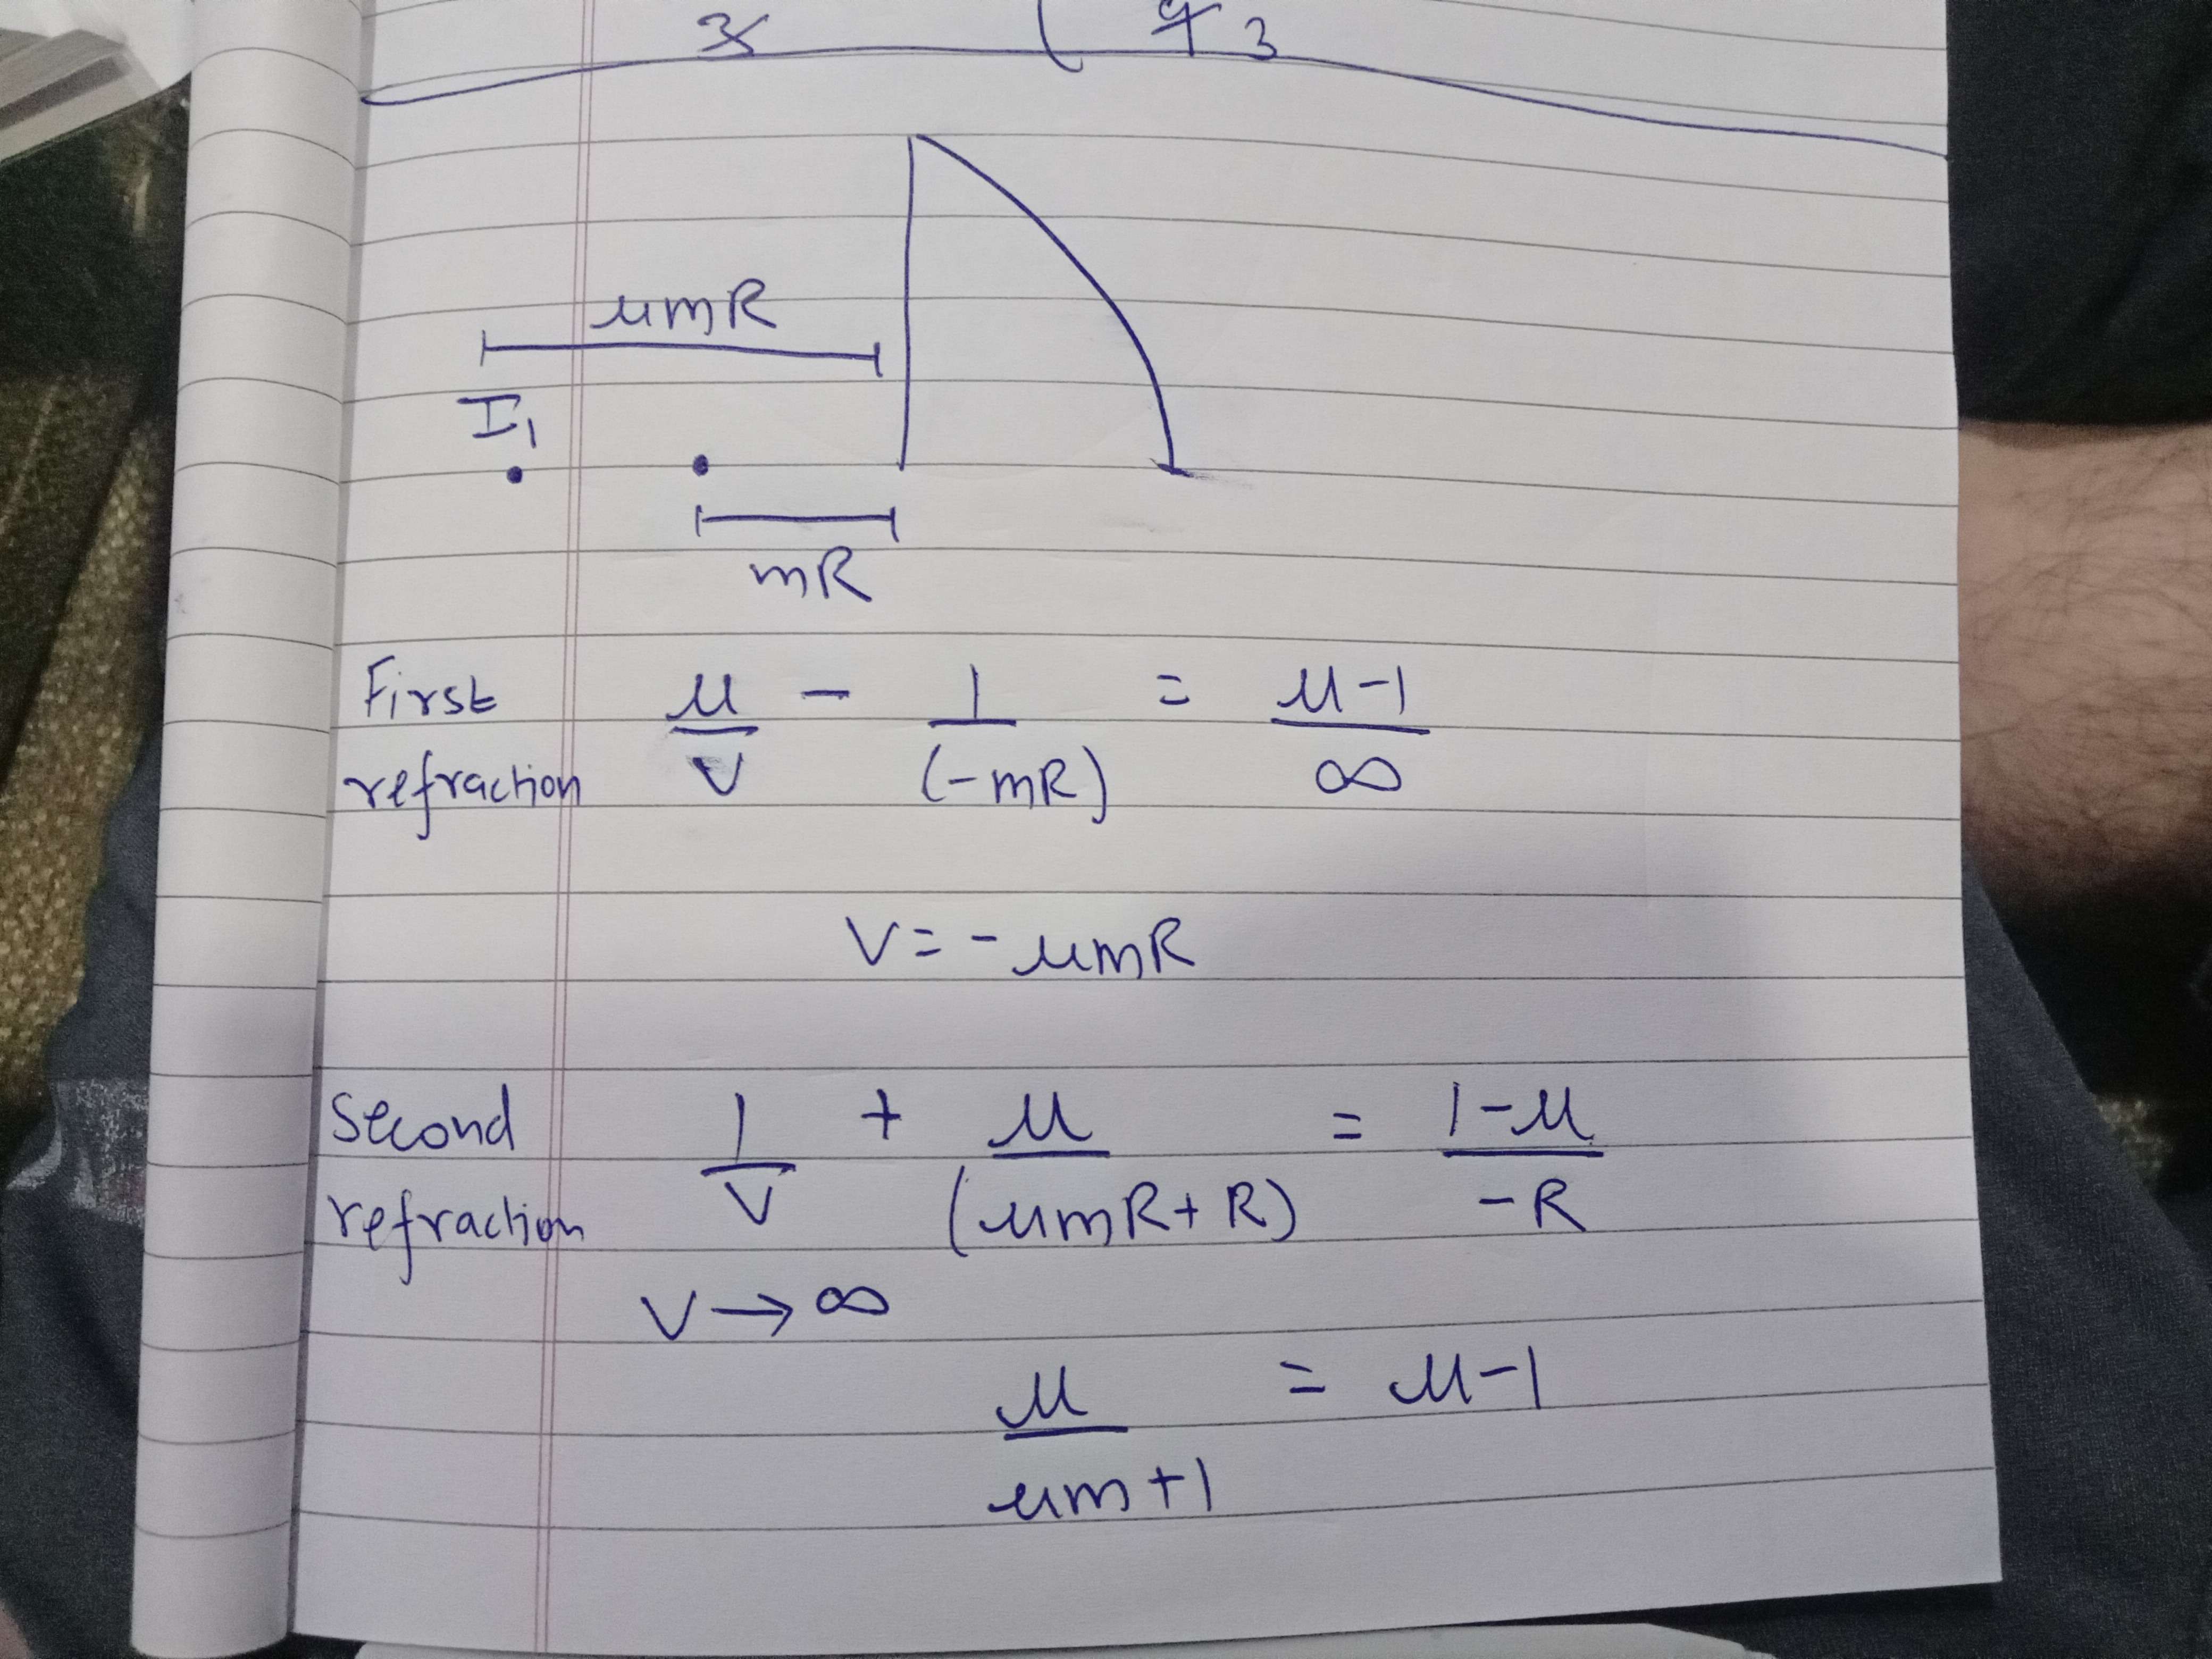 3
μmR
I₁
mR
First refraction μ/v - 1/(-mR) = μ-1/∞
v = -μmR
Second refraction 1/v + μ/(μmR+R) = 1-μ/-R
v → ∞
μ/μm+1 = μ-1